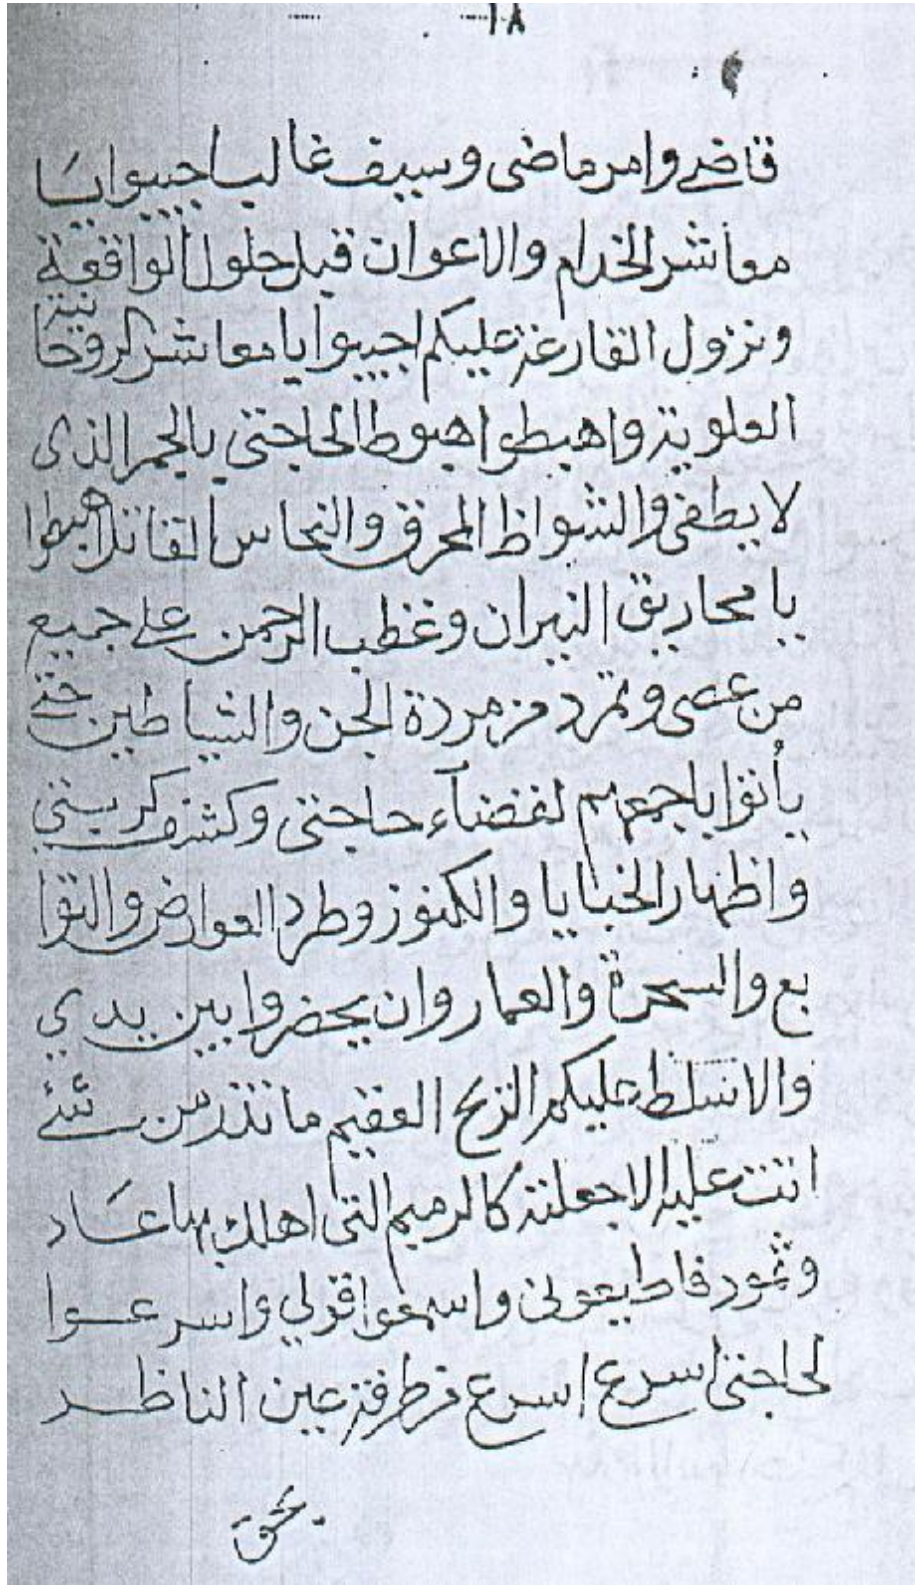 ١٨
قاضي وامر ماضى وسيف غالب اجيبوا يا
معاشر الخدام والاعوان قبل حلول الواقعة
ونزول القارعة عليكم اجيبوا يا معاشر الروحانية
العلوية واهبطوا هبوط الحاجتي بالجمر الذى
لا يطفى والشواظ المحرق والنحاس القاتل اهبطوا
يا محاريق النيران وغظب الرحمن على جميع
من عصى وتمرد من مردة الجن والشياطين حتى
يأتوا باجمعهم لقضآء حاجتى وكشف كربتي
واظهار الخبايا والكنوز وطرد العوارض والتوا
بع والسحرة والعمار وان يحضروا بين يدي
والا نسلط عليكم الريح العقيم ما تذر من شئ
اتت عليه الا جعلته كالرميم التى اهلك بها عاد
وثمود فاطيعونى واسمعوا قولي واسرعوا
لحاجتى اسرع اسرع من طرفة عين الناظر
بحق